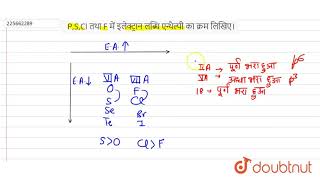 225662289
P,S,Cl तथा F में इलेक्ट्रान लब्धि एन्थैल्पी का क्रम लिखिए।
E·A ↑
E·A↓
VI A VII A
O F
S Cl
Se Br
Te I
S>O Cl>F
II A → पूर्ण भरा हुआ
VA → आधा भरा हुआ p³
18 → पूर्ण भरा हुआ
doubtnut